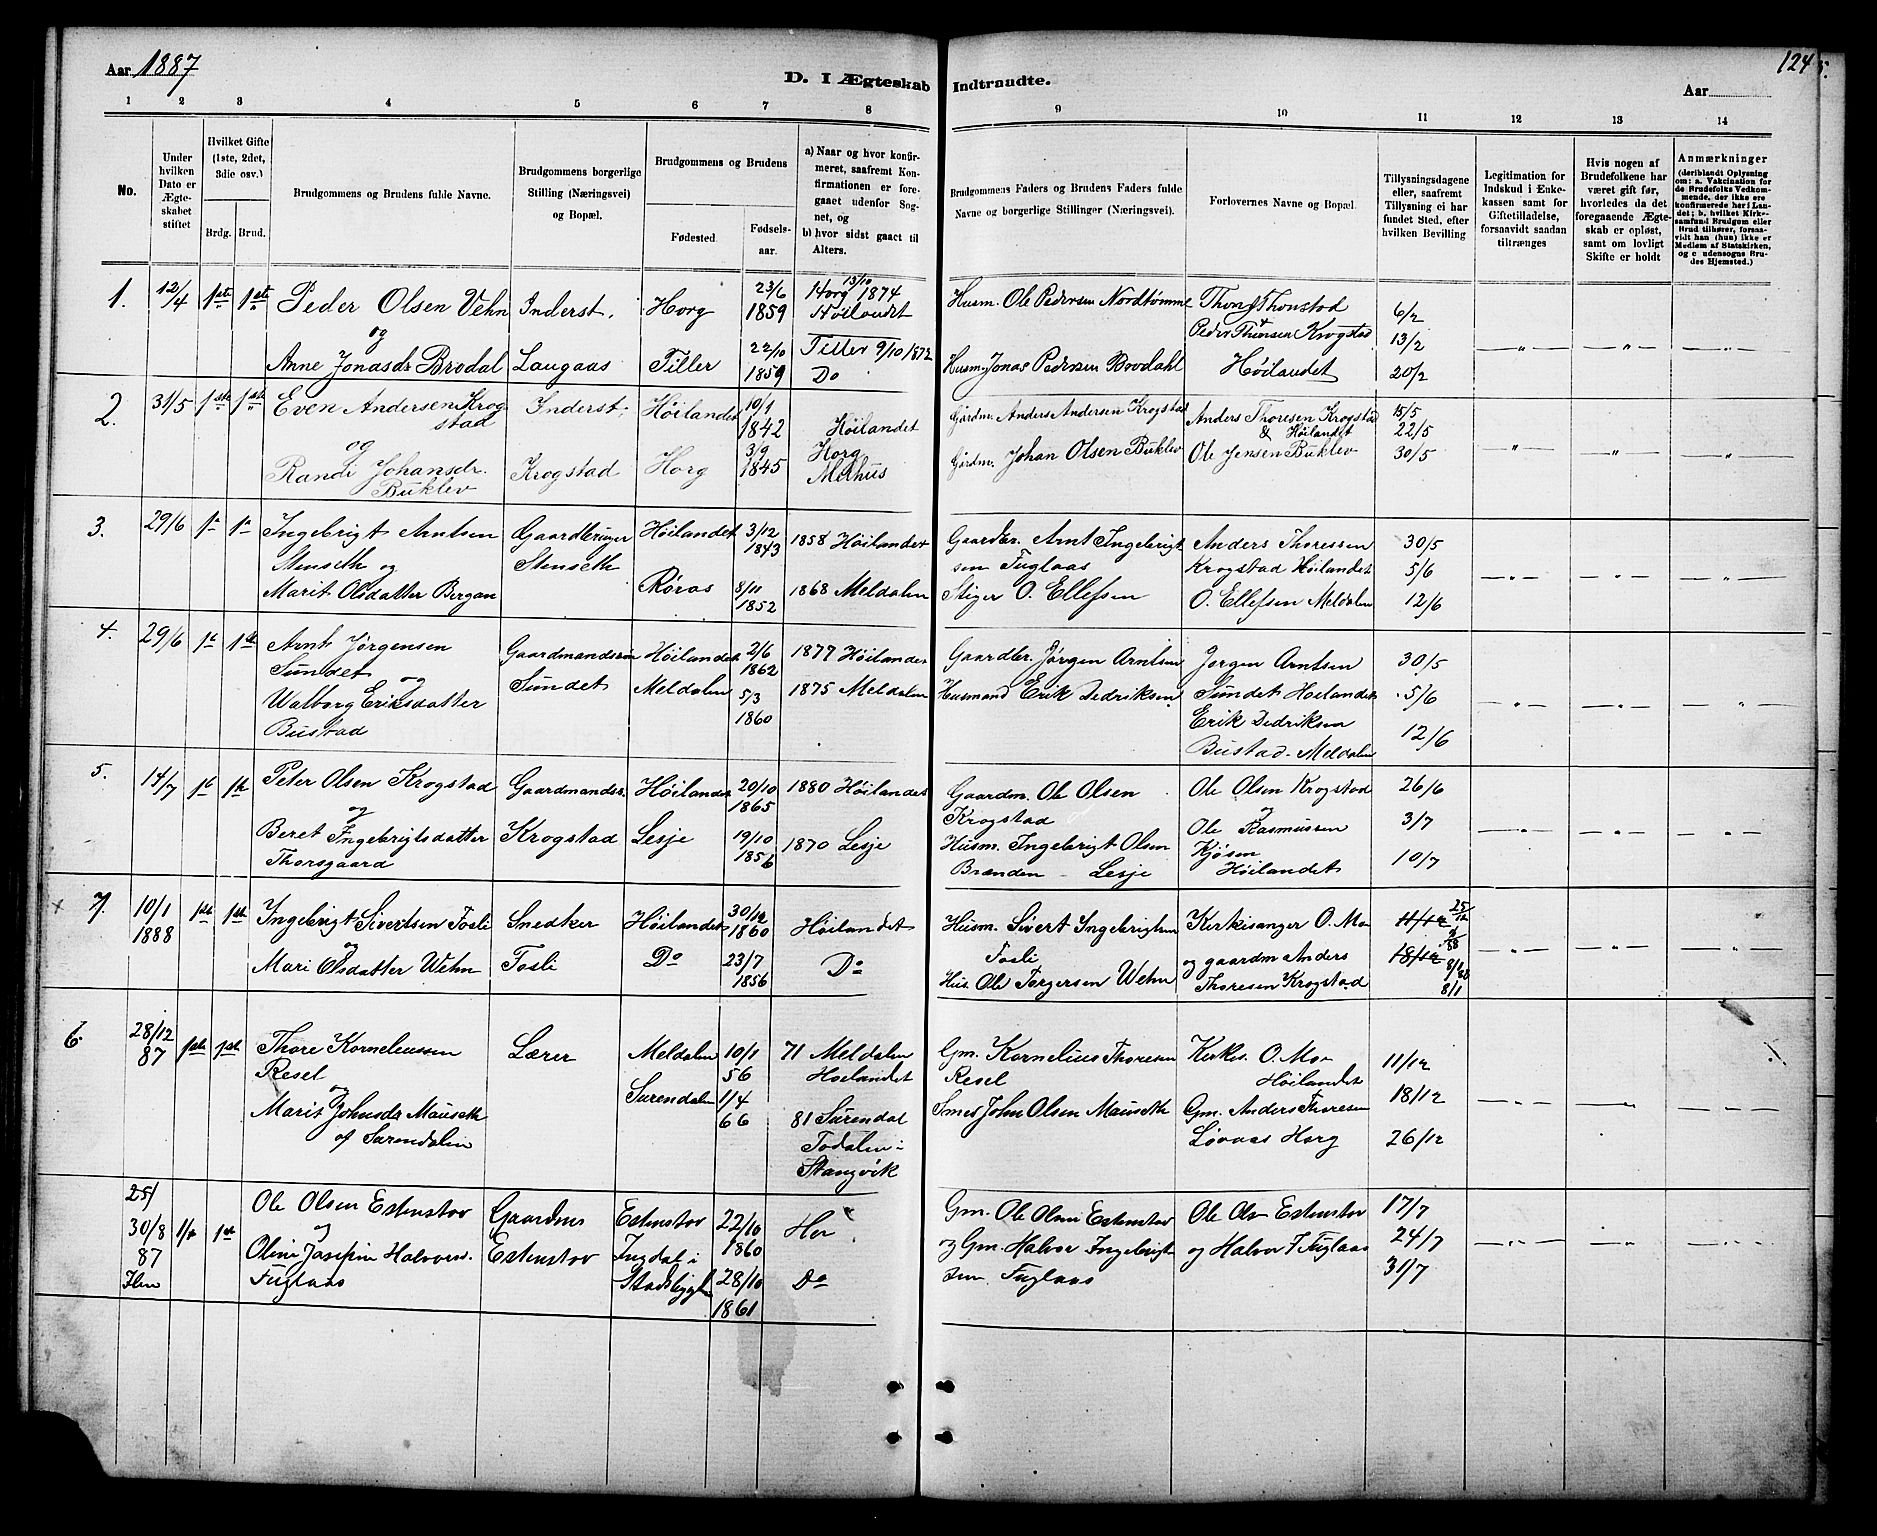 Aar 1887
D. I Ægteskab Indtraadte.
Aar
124
1 2 3 4 5 6 7 8 9 10 11 12 13 14
No.
Under hvilken Dato er Ægteskabet stiftet
Hvilket Gifte (1ste, 2det, 3die osv.)
Brdg. Brud.
Brudgommens og Brudens fulde Navne.
Brudgommens borgerlige Stilling (Næringsvei) og Bopæl.
Brudgommens og Brudens
Fødested.
Fødselsaar.
a) Naar og hvor konfirmeret, saafremt Konfirmationen er foregaaet udenfor Sognet, og
b) hvor sidst gaaet til Alters.
Brudgommens Faders og Brudens Faders fulde Navne og borgerlige Stillinger (Næringsvei).
Forlovernes Navne og Bopæl.
Tillysningsdagene eller, saafremt Tillysning ei har fundet Sted, efter hvilken Bevilling
Legitimation for Indskud i Enkekassen samt for Giftetilladelse, forsaavidt saadan tiltrænges
Hvis nogen af Brudefolkene har været gift før, hvorledes da det foregaaende Ægteskab er opløst, samt om lovligt Skifte er holdt
Anmærkninger (deriblandt Oplysning om: a. Vakcination for de Brudefolks Vedkommende, der ikke ere konfirmerede her i Landet; b. hvilket Kirkesamfund Brudgom eller Brud tilhører, forsaavidt han (hun) ikke er Medlem af Statskirken, og c udensogns Brudes Hjemsted.)
1. 12/4 1ste 1ste Peder Olsen Vehn Inderst, Horg 23/6 1859 Horg 13/10 1874 Høilandet Husm. Ole Pedersen Nordtømme Thore Thonstad 6/2
og Peder Thonsen Krogstad 13/2
Anne Jonasdr Brodal Laugaas Tiller 22/10 1859 Tiller 9/10 1872 Do Husm. Jonas Pedersen Brodahl Høilandet 20/2
2. 31/5 1ste 1ste Even Andersen Krogstad Inderst; Høilandet 10/1 1842 Høilandet Gårdm. Anders Andersen Krogstad Anders Thoresen Krogstad 15/5
og & Høilandet 22/5
Randi Johansdr. Buklev Krogstad Horg 3/9 1845 Horg Melhus Gårdm. Johan Olsen Buklev Ole Jensen Buklev 30/5
3. 29/6 1ste 1ste Ingebrigt Arntsen Gaardbruger Høilandet 3/12 1843 1858 Høilandet Gaardbr. Arnt Ingebrigtsen Fuglaas Anders Thoressen 30/5
Stenseth og Stenseth Krogstad Høilandet 5/6
Marit Olsdatter Bergan Røros 8/11 1852 1868 Meldalen Stiger O. Ellefsen O. Ellefsen Meldalen 12/6
4. 29/6 1ste 1ste Arnt Jørgensen Gaardmandssøn Høilandet 2/6 1862 1877 Høilandet Gaardbr. Jørgen Arntsen Jørgen Arntsen 30/5
Sundet og Sundet Meldalen 5/3 1860 1875 Meldalen Husmand Erik Dedriksen Sundet Høilandet 5/6
Walborg Eriksdatter Erik Dedriksen
Bustad Bustad - Meldalen 12/6
5. 14/7 1ste 1ste Peter Olsen Krogstad Gaardmandss. Høilandet 20/10 1865 1880 Høilandet Gaardm. Ole Olsen Ole Olsen Krogstad 26/6
og Krogstad og
Beret Ingebrigtsdatter Krogstad Lesje 19/10 1856 1870 Lesje Husm. Ingebrigt Olsen Ole Rasmussen 3/7
Thorsgaard Brænden - Lesje Kjøsen Høilandet 10/7
7. 10/1 1888 1ste 1ste Ingebrigt Sivertsen Fosli Snedker Høilandet 30/12 1860 Høilandet Husm. Sivert Ingebrigtsen Kirkesanger O. Mo 11/12 25/12
og Fosli 1/88
Mari Olsdatter Wehn Fosli Do 23/7 1856 Do Hus. Ole Torgersen Wehn og gaardm Anders Thoresen Krogstad 18/12 8/1 88
8/1
6. 28/12 87 1ste 1ste Thore Korneliussen Lærer Meldalen 10/1 56 71 Meldalen Høilandet Gm. Kornelius Thoresen Kirkes. O. Mo 11/12
Resel Resel Høilandet
og
Marit Johnsdr Mauseth Surendalen 1/4 66 81 Surendal Smed John Olsen Mauseth Gm. Anders Thoresen 18/12
af Surendalen Todalen i Stangvik Løvaas Horg 26/12
25/
30/8 87 Ilen 1ste Ole Olsen Estenstov Gaardm Estenstov 22/10 1860 Her Gm. Ole Olsen Estenstov Ole Ols Estenstov 17/7
og
Oline Josefine Halvors. Estenstov Ingdal i 28/10 1861 Do og Gm. Halvor Ingebrigtsen og Halvor I Fuglaas 24/7
Fuglaas Stadsbygden Fuglaas 31/7